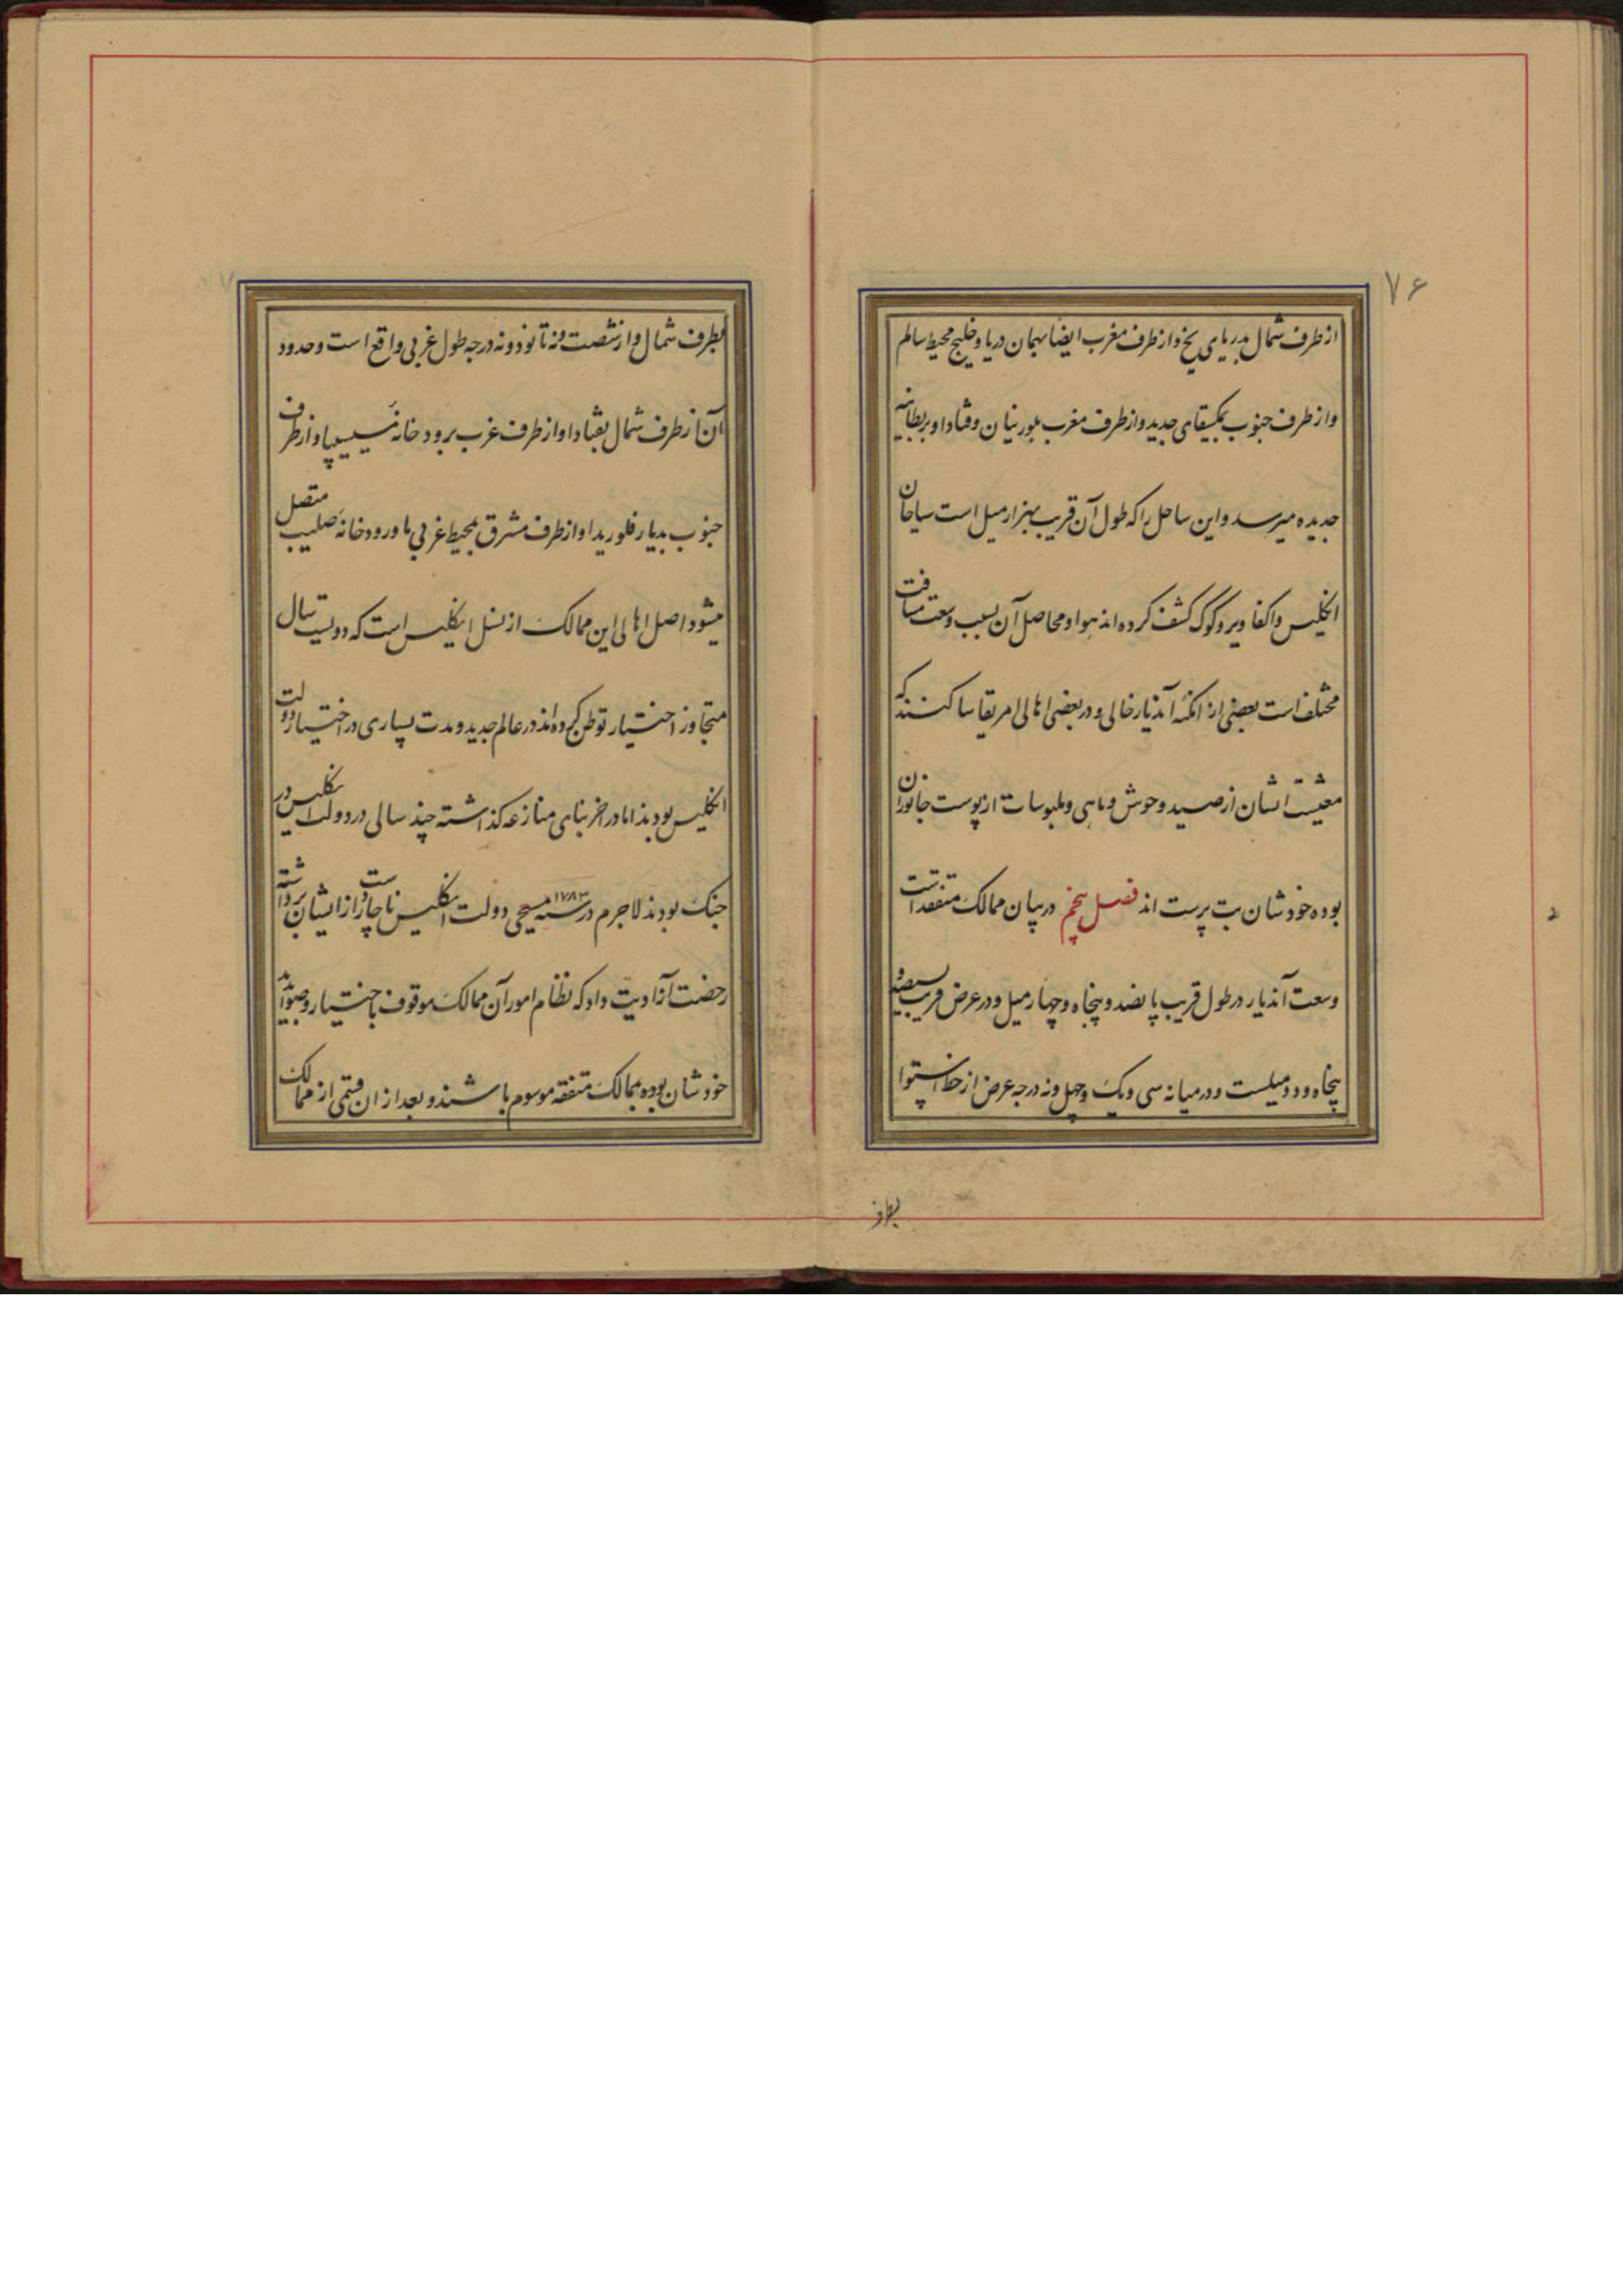 ۷۶
از طرف شمال بدریای یخ و از طرف مغرب ایضا بهمان دریا و خلیج محیط سالم
و از طرف جنوب بمکسیقای جدید و از طرف مغرب بلورنیان و قنادا و بریطانیه
جدیده میرسد و این ساحل را که طول آن قریب بهزار میل است سیاحان
انگلیس واکفا ویر و کوک کشف کرده اند هوا و محاصل آن بسبب وسعت مسافت
مختلف است بعضی از امکنه آندیار خالی و در بعضی اهالی امریقا ساکنند که
معیشت ایشان از صید وحوش و ماهی و ملبوسات از پوست جانوران
بوده خودشان بت پرست اند فصل پنجم در بیان ممالک متفقه است
وسعت آندیار در طول قریب پانصد و پنجاه و چهار میل و در عرض قریب سیصد و
پنجاه و دو میلست و در میانه سی و یک و چهل و نه درجه عرض از خط استوا
بطرف
بطرف شمال و از شصت و نه تا نود و نه درجه طول غربی واقع است و حدود
آن از طرف شمال بقنادا و از طرف غرب برودخانه میسیسیپا و از طرف
جنوب بدیار فلوریدا و از طرف مشرق بمحیط غربی با ورودخانه صلیب متصل
میشود اصل اهالی این ممالک از نسل انگلیس است که دویست سال
متجاوز اختیار توطن کرده اند در عالم جدید و مدت بسیاری در اختیار دولت
انگلیس بودند اما در اخر بنای منازعه گذاشته چند سالی در دولت انگلیس در
جنک بودند لاجرم در سنه ۱۷۸۳ مسیحی دولت انگلیس ناچار دست از ایشان برداشته
رخصت آزادیت داد که نظام امور آن ممالک موقوف باختیار و صوابدید
خودشان بوده بممالک متفقه موسوم باشند و بعد از ان قسمی از ممالک